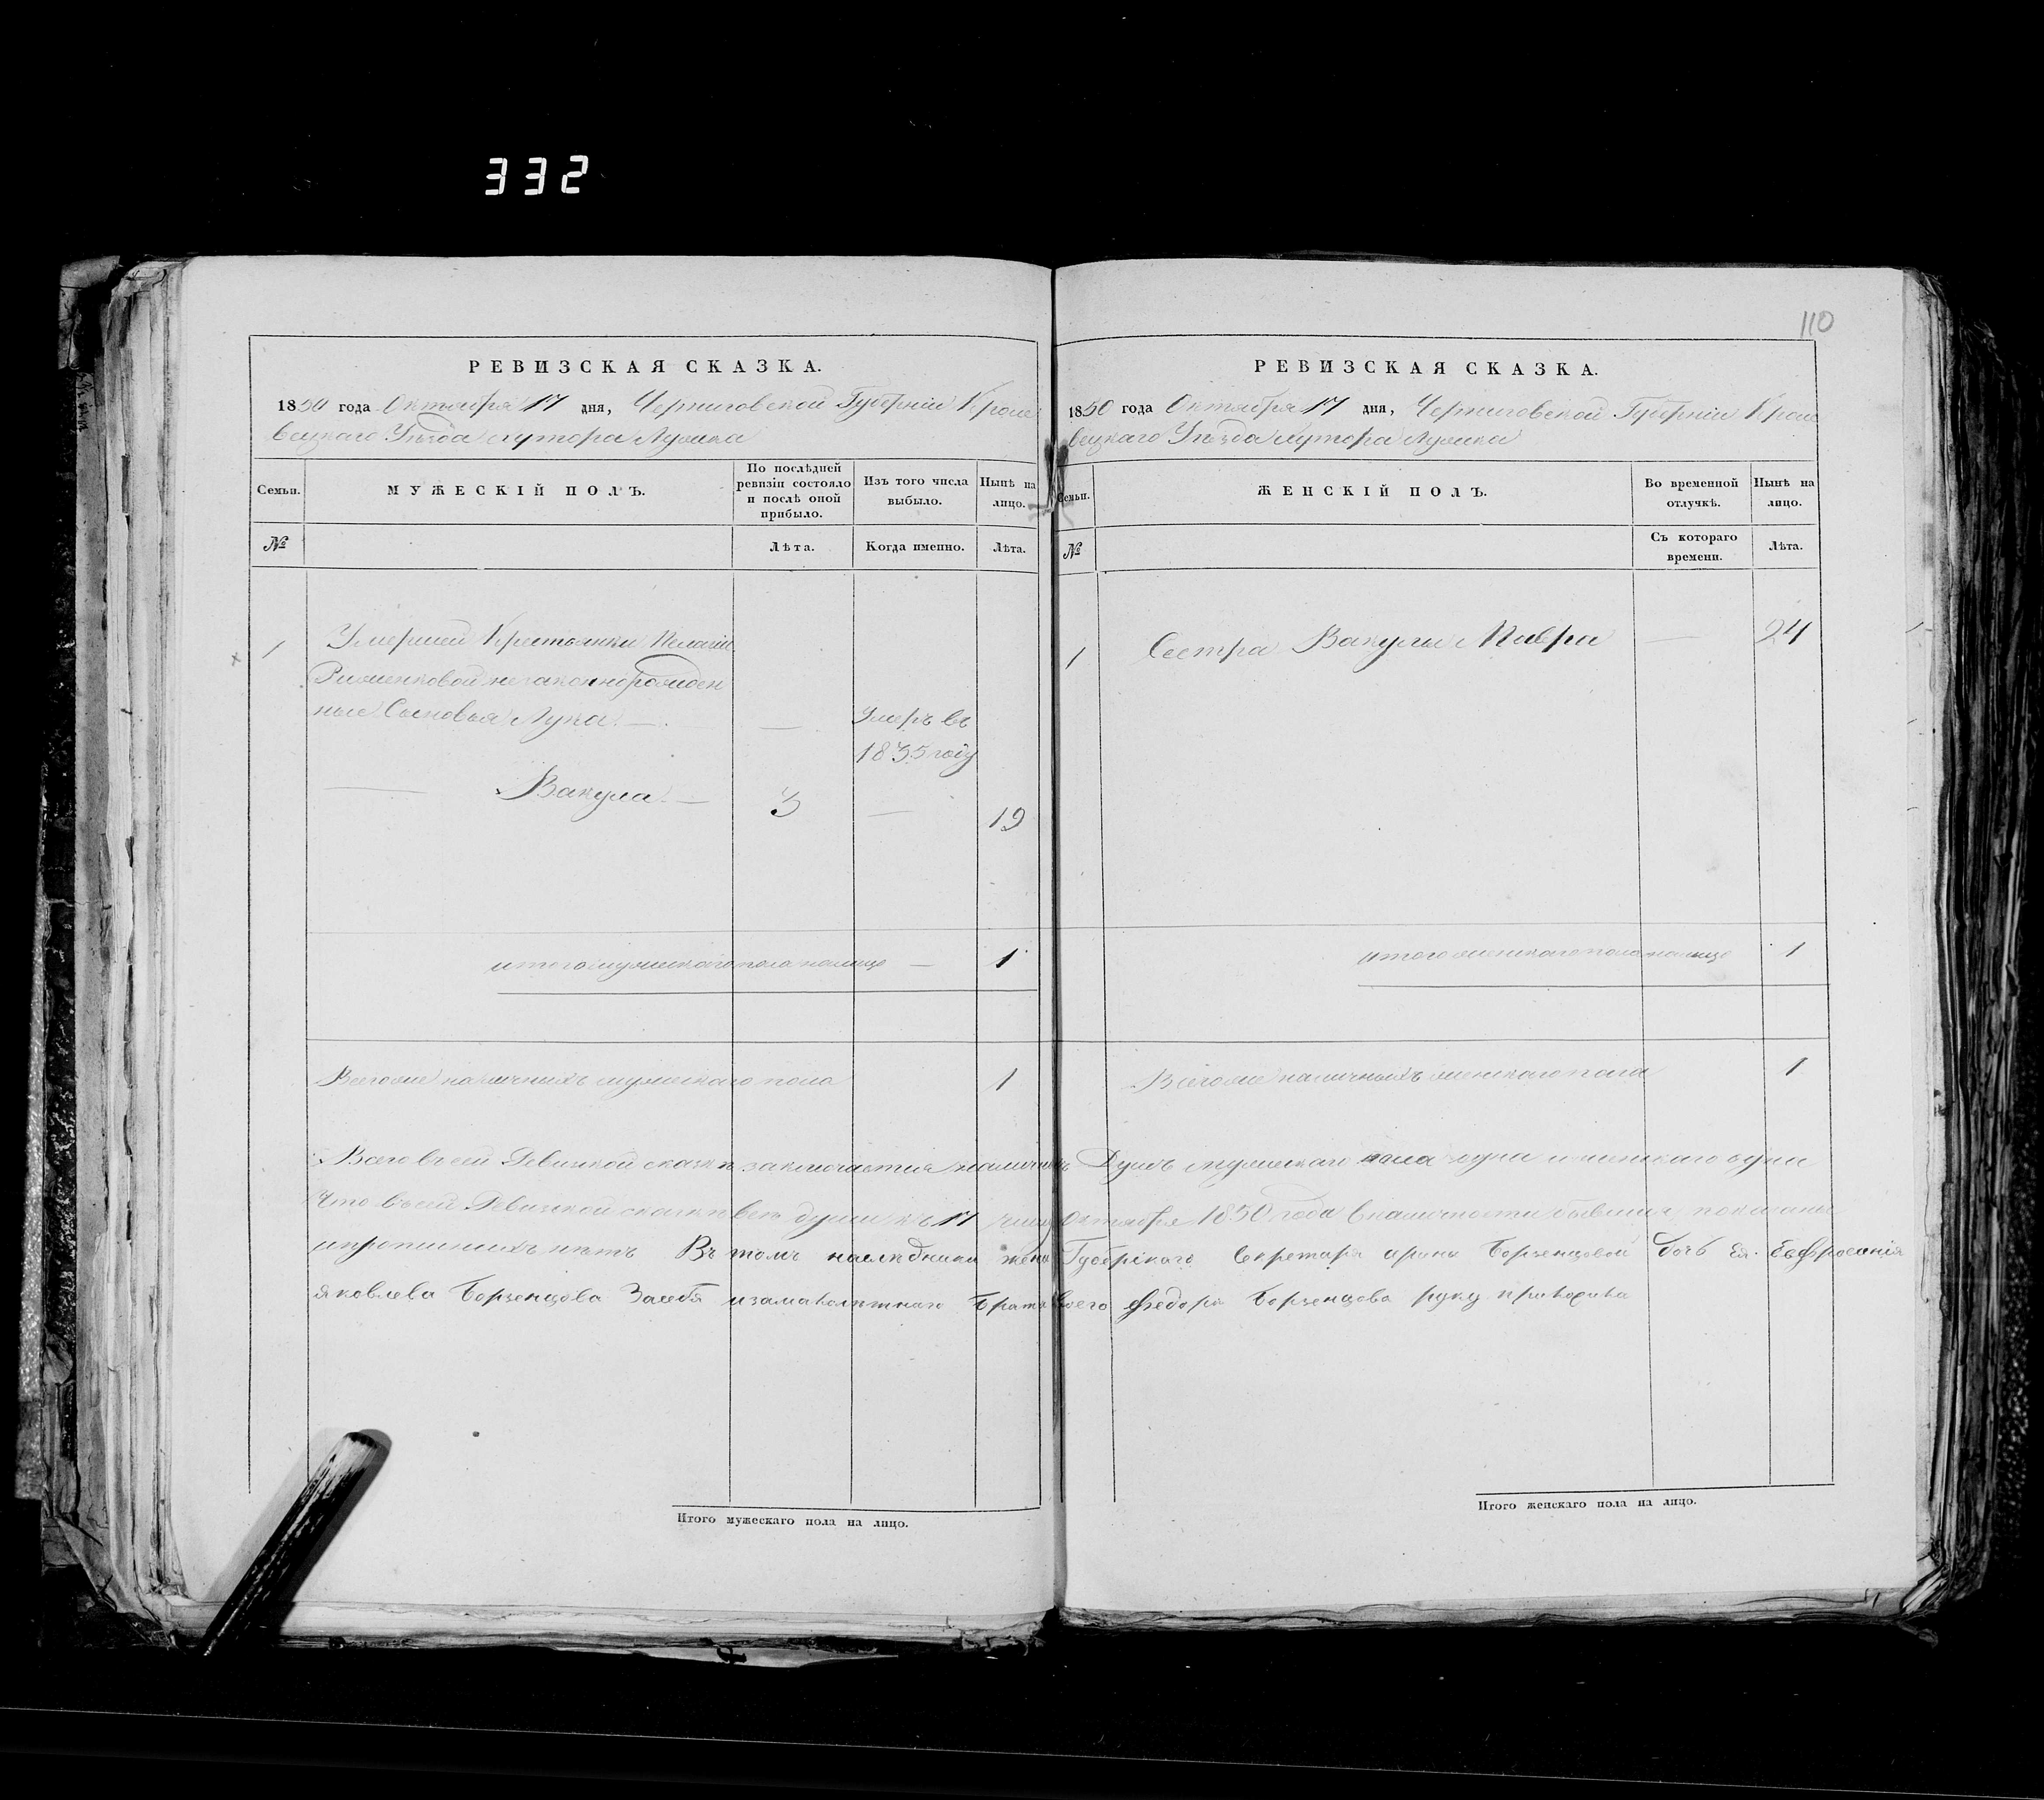 332
110
РЕВИЗСКАЯ СКАЗКА.
1850 года Октября 17 дня, Черниговской Губерніи Кроле
вецкаго Уѣзда хутора Лужка
Семьи.
МУЖЕСКІЙ ПОЛЪ.
По послѣдней
ревизіи состояло
и послѣ оной
прибыло.
Изъ того числа
выбыло.
Нынѣ на
лицо.
№
Лѣта.
Когда именно.
Лѣта.
1
Умершей Крестьянки Пелагіи
незаконнорожден
ные Сыновья Лука —
—
Умеръ въ
1835 году
— Вакула —
3
—
19
итого мужескаго пола налице — 1
Всего же наличныхъ мужескаго пола 1
РЕВИЗСКАЯ СКАЗКА.
1850 года Октября 17 дня, Черниговской Губерніи Кроле
вецкаго Уѣзда хутора Лужка
Семьи.
ЖЕНСКІЙ ПОЛЪ.
Во временной
отлучкѣ.
Нынѣ на
лицо.
№
Съ котораго
времени.
Лѣта.
1
Сестра Вакулы Мавра — 24
итого женскаго пола налице 1
Всего же наличныхъ женскаго пола 1
Всего въ сей Ревизкой сказкѣ заключается наличныхъ Душъ мужескаго пола одна и женскаго одна
Что въ сей Ревизкой сказкѣ всѣ души къ 17 числу Октября 1850 года в наличности бывшия показаны
и прописныхъ нѣтъ Въ томъ наслѣдники жены Губерскаго Секретаря Ирины Борзенцовой дочь Ея Евфросинія
яковлева Борзенцова За себя и за малолѣтнаго брата своего Федора Борзенцова руку приложила
Итого мужескаго пола на лицо.
Итого женскаго пола на лицо.